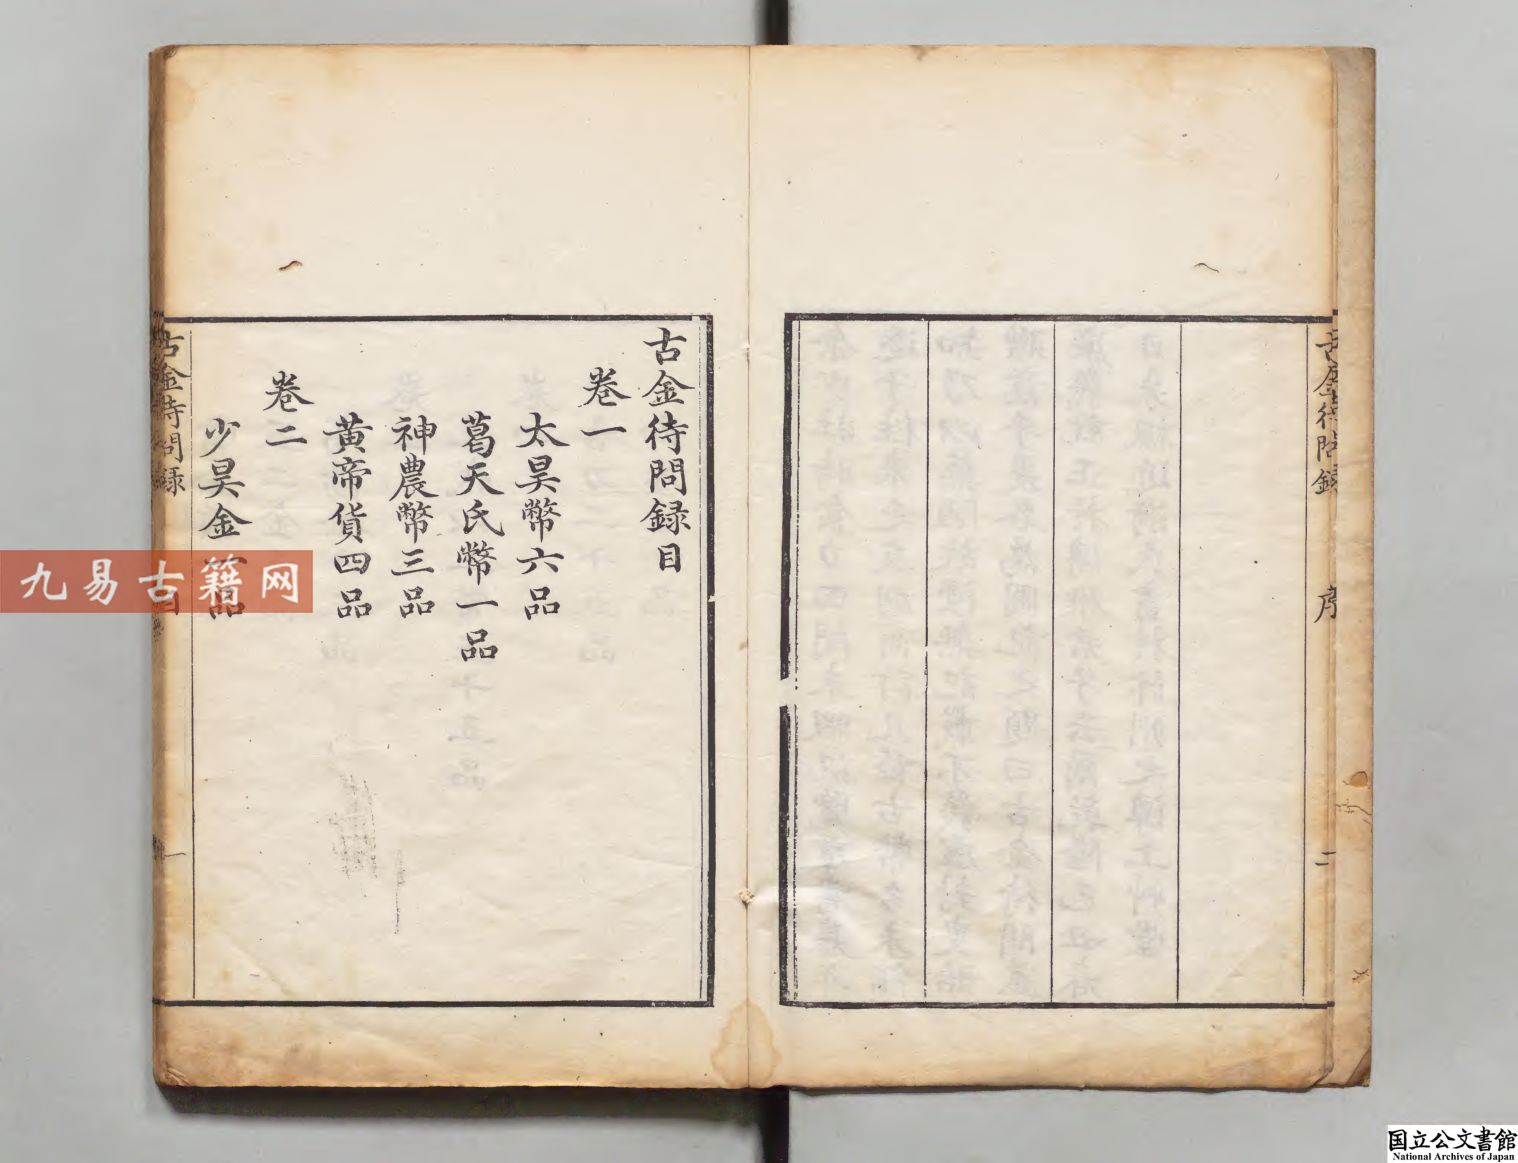 古金待問録
序
二
古金待問録目
卷一
太昊幣六品
葛天氏幣一品
神農幣三品
黃帝貨四品
卷二
少昊金
品
古金待問録
目
一
九易古籍网
国立公文書館
National Archives of Japan